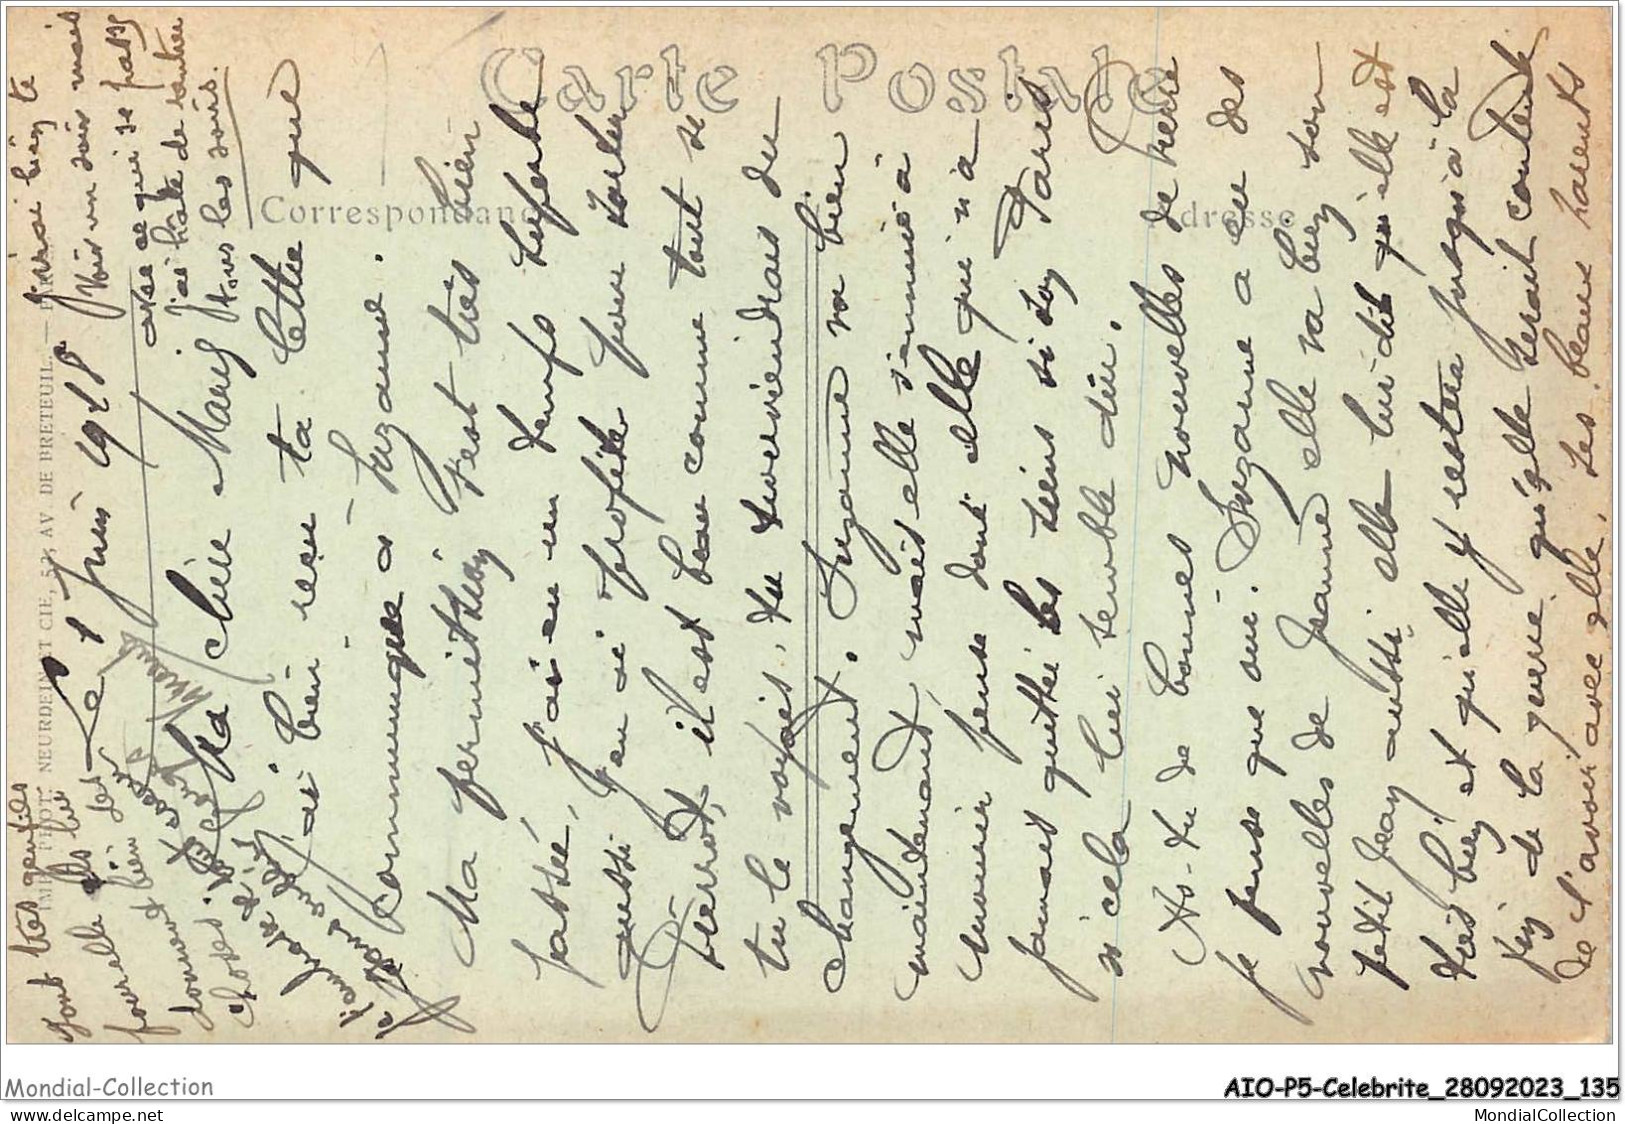 Le 1 Juin 1918
Ma chère Mary
J'ai bien reçu ta lettre que
communiquée à Suzanne.
Ma permission s'est très bien
passée, j'ai eu un temps superbe
aussi j'en ai profité pour
Pierrot, il est beau comme tout si
tu le voyais, tu reviendrais du
changement. Suzanne va bien
maintenant, mais elle s'ennuie à
mourir pense donc elle qui n'a
jamais quittée les siens si loin Paris
cela lui semble dur.
As-tu de bonnes nouvelles de Pierre
je pense que oui. Suzanne a eu des
nouvelles de Jeanne elle va bien son
petit Jean aussi. elle lui dit qu'elle est
très bien et qu'elle y restera jusqu'à la
fin de la guerre, qu'elle serait contente
de l'avoir avec elle, ses beaux parents
sont très gentils
pour elle et lui
donnent bien des
choses.
je
t'embrasse
J'irai bien te
voir un soir mais
avec ce qui se passe
j'ai hâte de rentrer
tous les soirs.
Carte Postale
Correspondance
Adresse
IMP. PHOT. NEURDEIN ET CIE, 52, AV. DE BRETEUIL. — PARIS
Mondial-Collection
AIO-P5-Celebrite_28092023_135
www.delcampe.net
MondialCollection